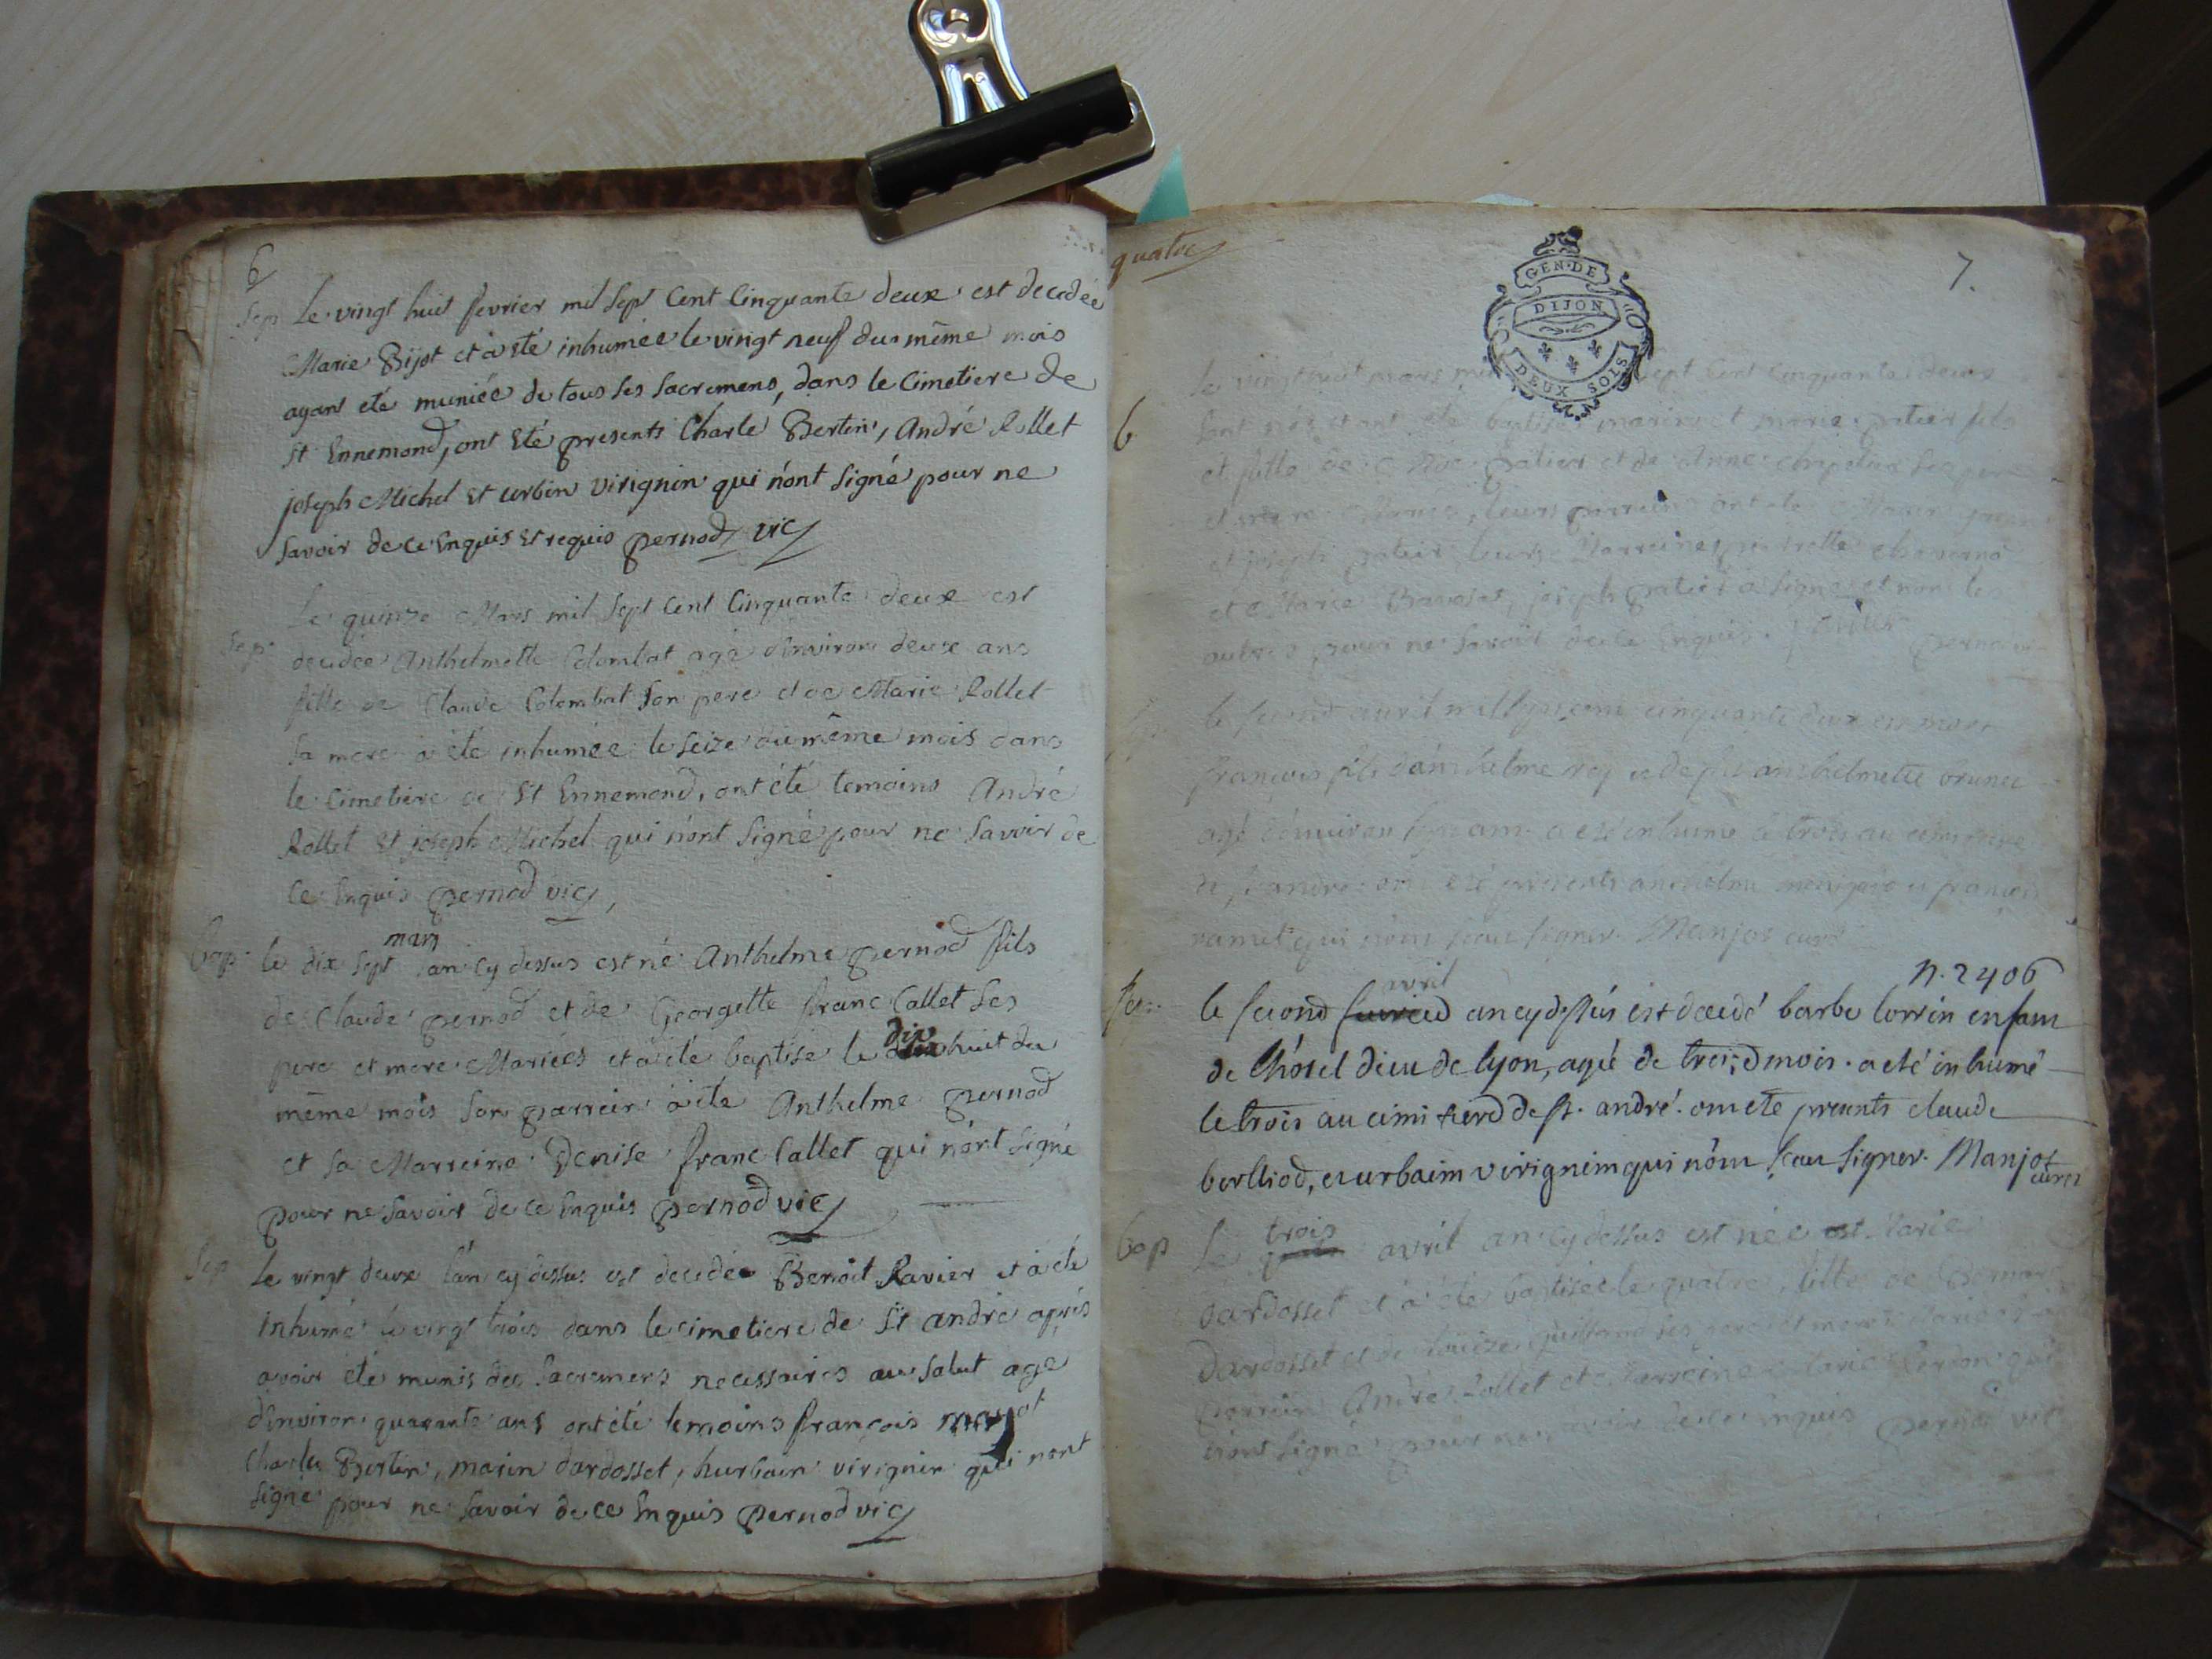 6
Sep Le vingt huit fevrier mil sept Cent Cinquante deux est decedée
Marie Bijot et à été inhumée le vingt neuf du même mois
ayant eté muniée de tous ses sacremens, dans le Cimetiere de
St Ennemond, ont été presents Charle Bertin, André Rollet
joseph Michel et urbin virignin qui n'ont signé pour ne
savoir de ce Enquis et requis pernod vic
Le quinze Mars mil sept Cent Cinquante deux est
Sep. decidée Anthelmette Colombat agé d'environ deux ans
fille de Claude Colombat son pere et de Marie Rollet
sa mere à été inhumée le seize du même mois dans
le Cimetiere de St Ennemond, ont été temoins André
Rollet et joseph Michel qui n'ont signé pour ne savoir de
ce Enquis pernod vic,
mars
bap. le dix sept l'an cy dessus est né Anthelme pernod fils
de Claude pernod et de Georgette franc Callet ses
pere et mere Mariées et à été baptisé le dix huit du
même mois son parrein à été Anthelme pernod
et sa Marreine Denise franc Callet qui n'ont signé
pour ne savoir de ce Enquis pernod vic
Sep Le vingt deux l'an cy dessus est decedé Benoit Ravier et à été
inhumé le vingt trois dans le cimetiere de St andré après
avoir été munis des Sacremens necessaires au salut agé
d'environ quarante ans ont été temoins françois
Charles Bertin, marin dardosset, hurbain virignin qui nont
signé pour ne savoir de ce Enquis pernod vic
quatre
GEN. DE
DIJON
DEUX SOLS
7.
Le vingt huit mars sept Cent Cinquante deux
b sont nés et ont été baptisé marin et marie patier fils
et fille de patier et de Anne ses
et mere leurs parrein ont été
et joseph patier leurs Marreines
et Marie joseph patier a signé et non les
autres pour ne savoir de ce Enquis. pernod
le second avril cinquante deux est mort
francois fils d'anthelme roy et de anthelmette brunet
agé d'environ ans a eté inhumé le trois au cimetiere
de st andré. ont eté presents anthelme et francois
ramet qui n'ont sceu signer. Manjot curé
n. 2406
avril
le second an cy dessus est decedé barbe lorrin enfant
de l'hotel dieu de lyon, agé de trois mois. a eté inhumé
le trois au cimitiere de st. andré. ont eté presents claude
berlliod, et urbaim virignim qui n'ont sceu signer. Manjot
curé
trois
bap Le avril an cy dessus est née Marie
dardosset et à été baptisée le quatre, fille de
Dardosset et de ses pere et mere
parrein André Rollet et Marreine Marie qui
n'ont signé pour ne savoir de ce Enquis pernod vic